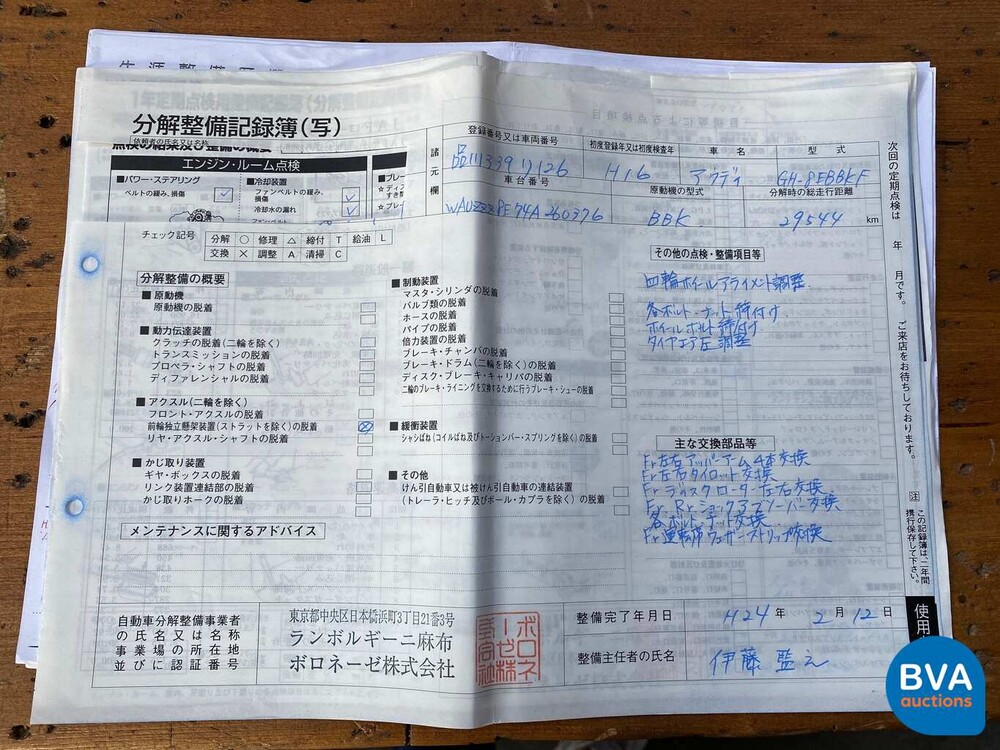 生涯整備
分解整備記録簿(写)
依頼者の氏名又は名称
点検の結果及び整備の概要
エンジン・ルーム点検
■パワー・ステアリング
ベルトの緩み、損傷
■冷却装置
ファンベルトの緩み、損傷
冷却水の漏れ
■ブレー
諸元欄
登録番号又は車両番号
初度登録年又は初度検査年
車名
型式
品川339
H16
アウディ
GH-8EBBKF
車台番号
原動機の型式
分解時の総走行距離
WAUZZZ8E74A260376
BBK
29544 km
次回の定期点検は 年 月です。 ご来店をお待ちしております。
注 この記録簿は、二年間携行保存して下さい。
チェック記号
分解 ○ 修理 △ 締付 T 給油 L
交換 × 調整 A 清掃 C
分解整備の概要
■原動機
原動機の脱着
■動力伝達装置
クラッチの脱着(二輪を除く)
トランスミッションの脱着
プロペラ・シャフトの脱着
ディファレンシャルの脱着
■アクスル(二輪を除く)
フロント・アクスルの脱着
前輪独立懸架装置(ストラットを除く)の脱着
リヤ・アクスル・シャフトの脱着
■かじ取り装置
ギヤ・ボックスの脱着
リンク装置連結部の脱着
かじ取りホークの脱着
■制動装置
マスタ・シリンダの脱着
バルブ類の脱着
ホースの脱着
パイプの脱着
倍力装置の脱着
ブレーキ・チャンバの脱着
ブレーキ・ドラム(二輪を除く)の脱着
ディスク・ブレーキ・キャリパの脱着
二輪のブレーキ・ライニングを交換するために行うブレーキ・シューの脱着
■緩衝装置
シャシばね(コイルばね及びトーションバー・スプリングを除く)の脱着
■その他
けん引自動車又は被けん引自動車の連結装置
(トレーラ・ヒッチ及びボール・カプラを除く)の脱着
その他の点検・整備項目等
四輪ホイールアライメント調整
各ボルト・ナット締付け
ホイールボルト締付け
タイヤエア圧調整
主な交換部品等
Fr左右アッパーアーム4本交換
Fr左右タイロット交換
Frディスクローター左右交換
Fr. Rrショックアブソーバー交換
各ボルト.ナット交換
Fr運転席ウェザーストリップ交換
メンテナンスに関するアドバイス
自動車分解整備事業者
の氏名又は名称
事業場の所在地
並びに認証番号
東京都中央区日本橋浜町3丁目21番3号
ランボルギーニ麻布
ボロネーゼ株式会社
ボロネーゼ株式会社
整備完了年月日
H24年 2月12日
整備主任者の氏名
伊藤
使用
BVA
auctions